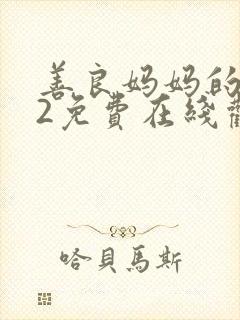 善良妈妈的
2免費在线
哈貝馬斯